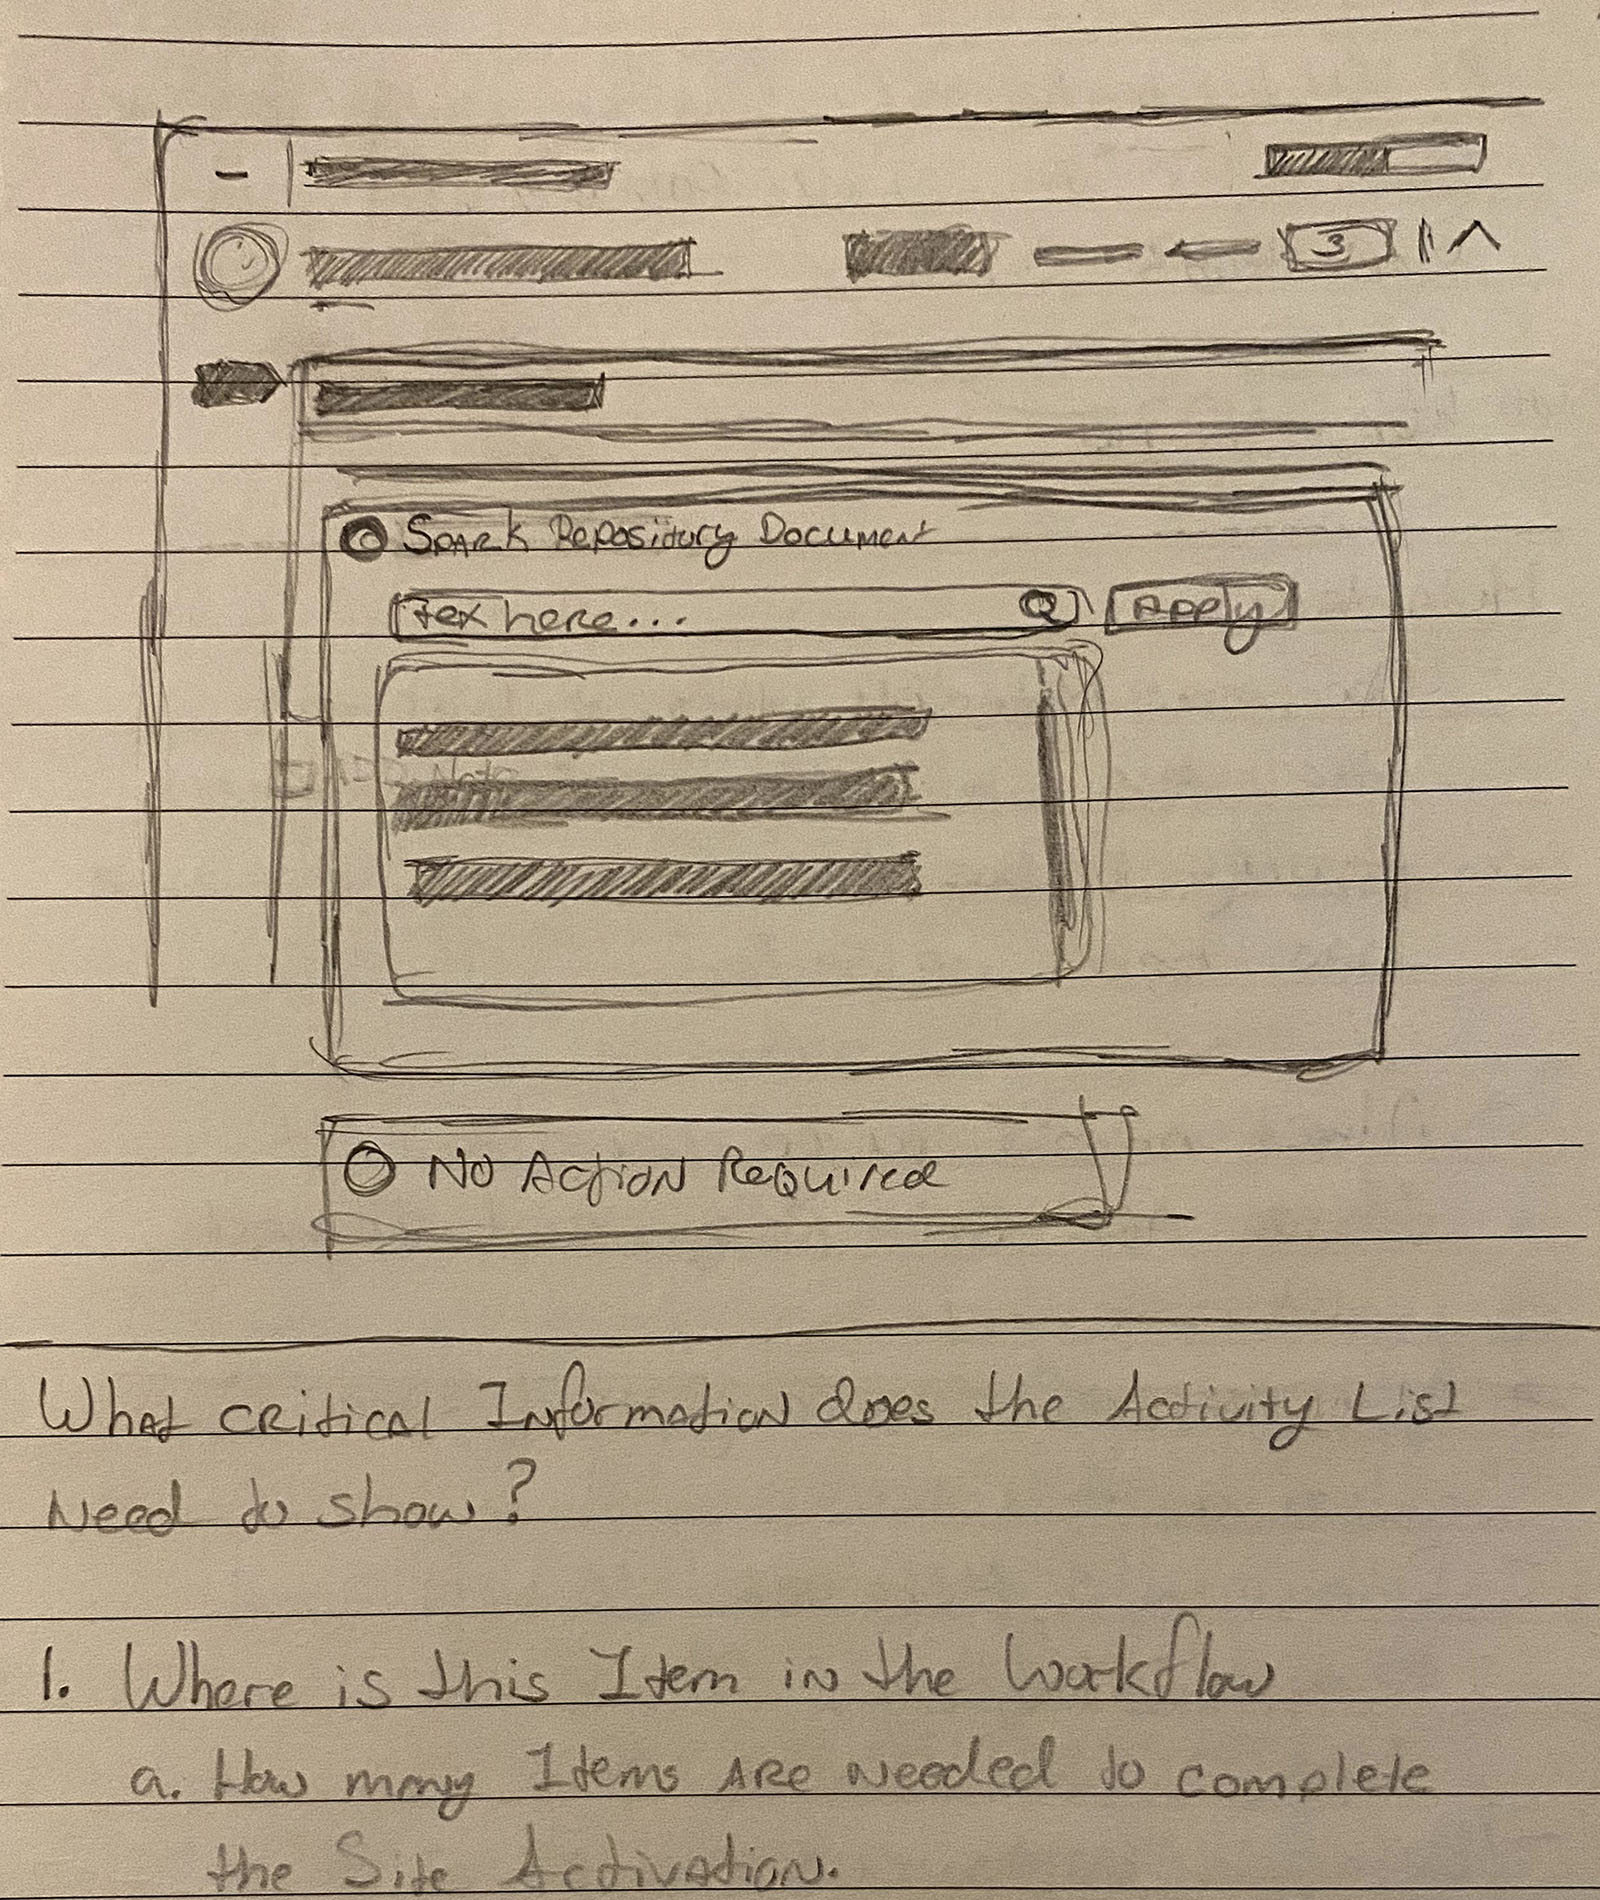 3
Spark Repository Document
tex here...
Apply
Note
No Action Required
What critical Information does the Activity List
Need to show?
1. Where is this Item in the Workflow
a. How many Items are needed to complete
the Site Activation.